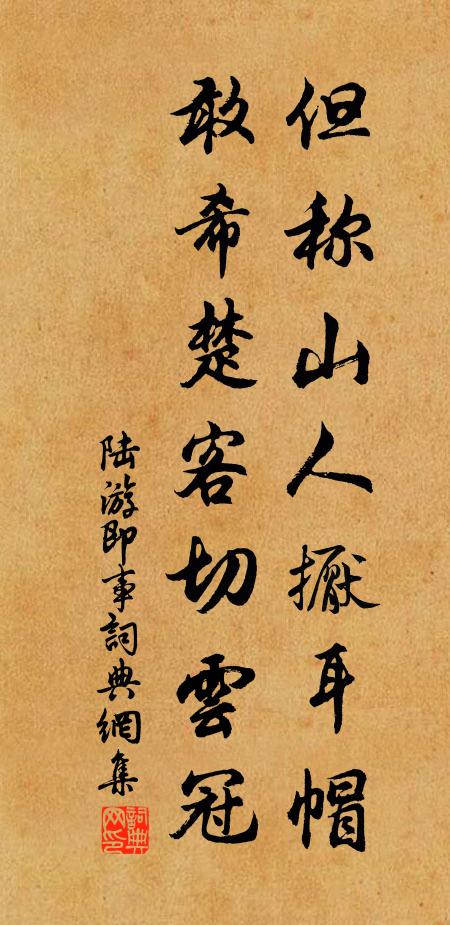 但称山人擫耳帽
敢希楚客切雲冠
陆游即事詞典網集
詞典网印